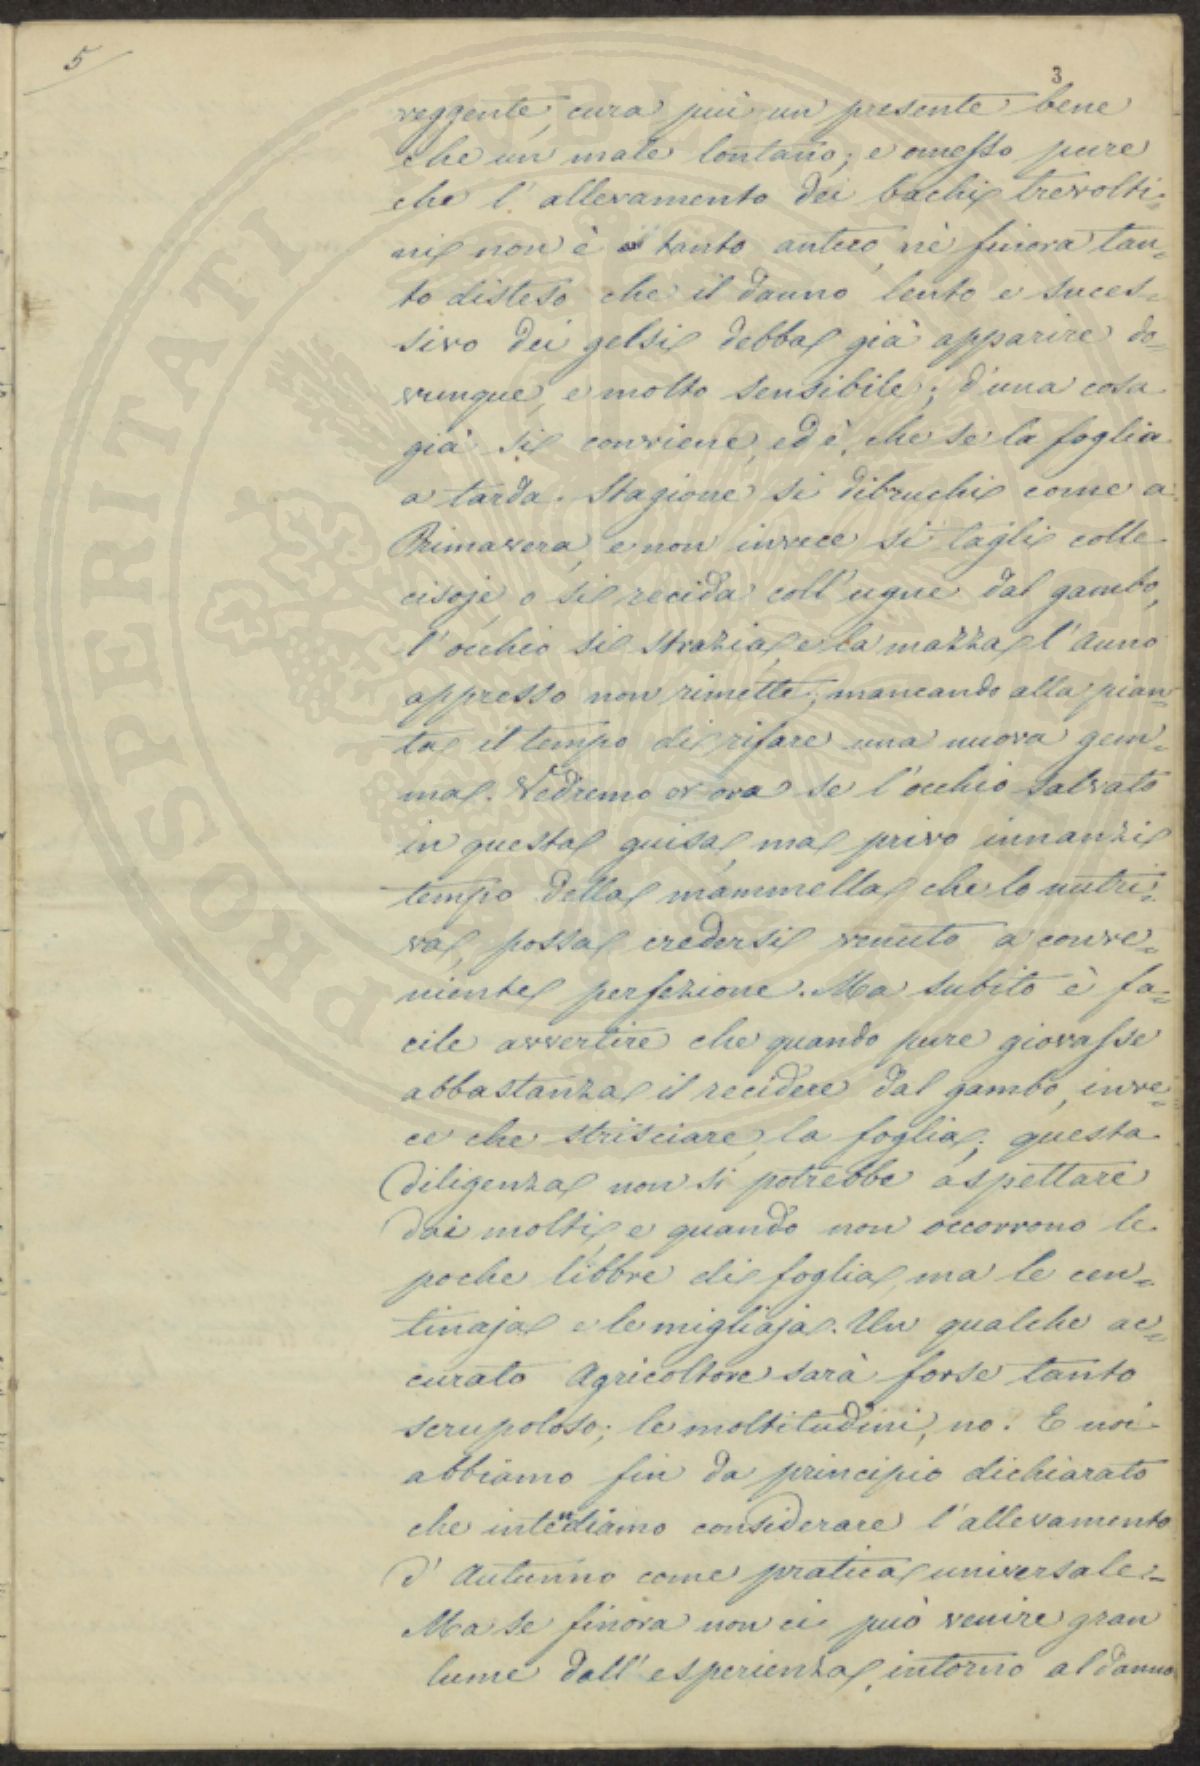 5
3
PROSPERITATI PUBLICAE
veggente, cura più un presente bene
che un male lontano; e omesso pure
che l'allevamento dei bachi trevolti=
ni non è tanto antico, nè finora tan=
to disteso che il danno lento e succes=
sivo dei gelsi debba già apparire do=
vunque, e molto sensibile; d'una cosa
già si conviene, ed è, che se la foglia
a tarda Stagione si dibruchi come a
Primavera, e non invece si tagli colle
cisoje, o si recida coll'ugne dal gambo,
l'occhio si strazia, e la mazza l'anno
appresso non rimette, mancando alla pian=
ta il tempo di rifare una nuova gem=
ma. Vedremo or ora se l'occhio salvato
in questa guisa, ma privo innanzi
tempo della mammella che lo nutri=
va, possa credersi venuto a conve=
niente perfezione. Ma subito è fa=
cile avvertire che quando pure giovasse
abbastanza il recidere dal gambo, inve=
ce che strisciare la foglia; questa
diligenza non si potrebbe aspettare
dai molti, e quando non occorrono le
poche libbre di foglia, ma le cen=
tinaja e le migliaja. Un qualche ac=
curato Agricoltore sarà forse tanto
scrupoloso; le moltitudini, no. E noi
abbiamo fin da principio dichiarato
che intendiamo considerare l'allevamento
d'Autunno come pratica universale.=
Ma se finora non ci può venire gran
lume dall'esperienza, intorno al danno